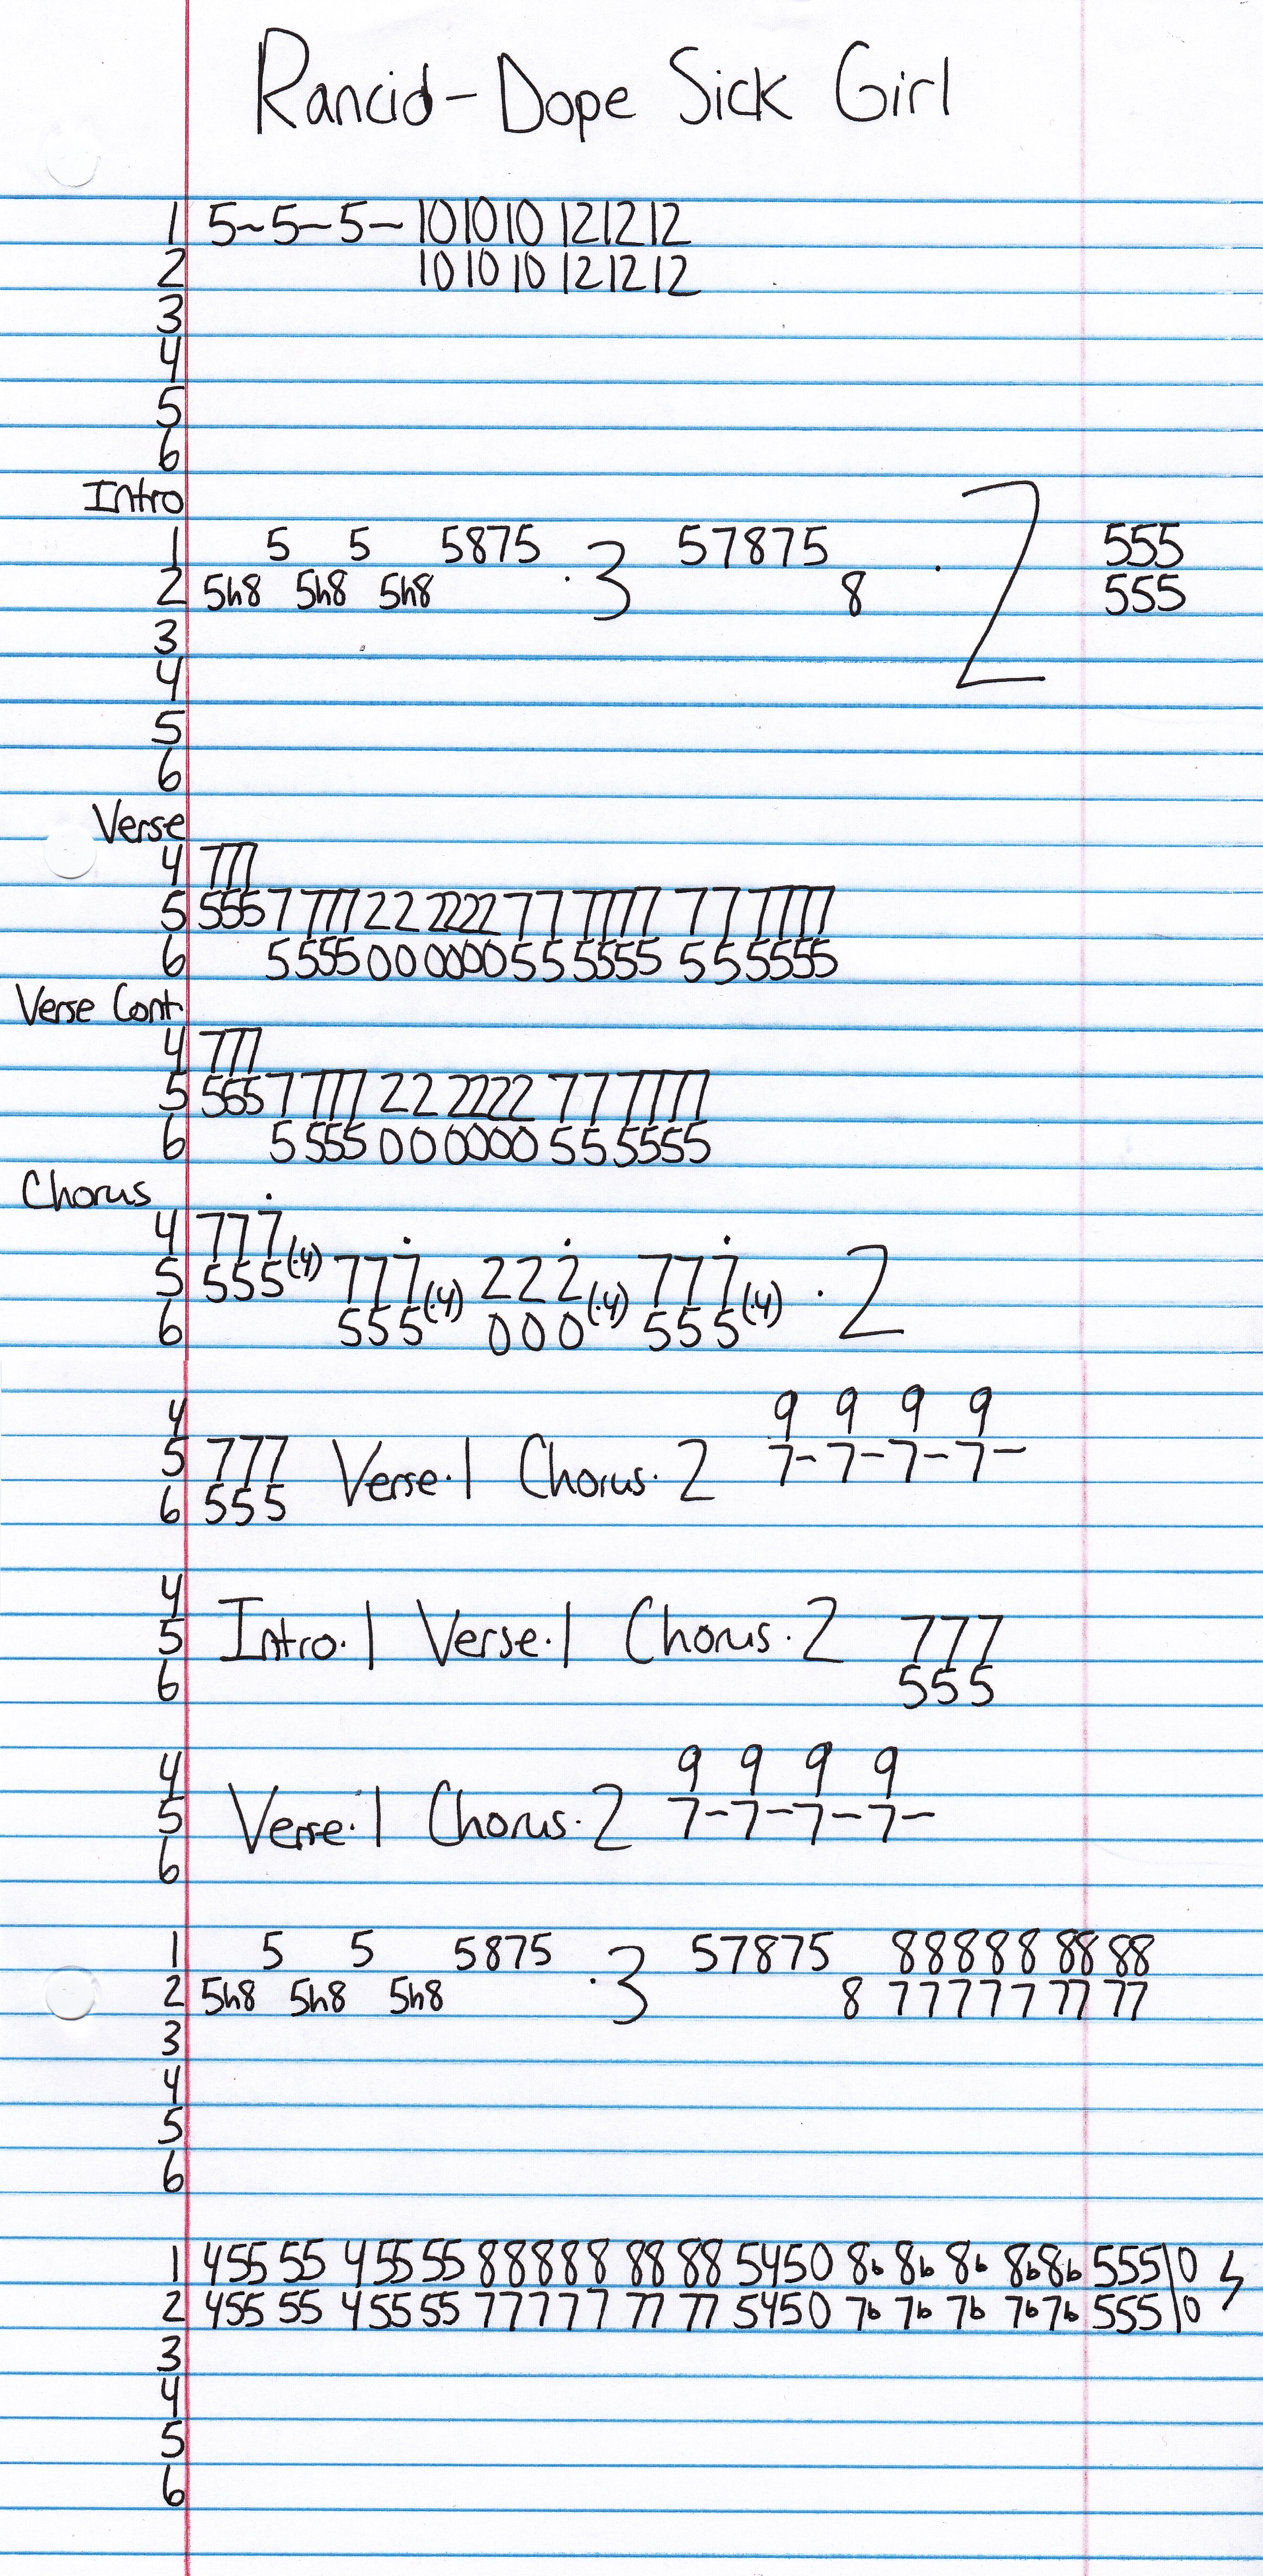 Rancid - Dope Sick Girl
1 5~5-5- 10 10 10 12 12 12
2 10 10 10 12 12 12
3
4
5
6
Intro
1 5 5 5875 ·3 57875 ·2 555
2 5h8 5h8 5h8 8 555
3
4
5
6
Verse
4 777
5 555 7 777 22 2222 77 7777 77 7777
6 5 555 00 0000 55 5555 55 5555
Verse Cont.
4 777
5 555 7 777 22 2222 77 7777
6 5 555 00 0000 55 5555
Chorus
4 777
5 555(·4) 777(·4) 222(·4) 777(·4) ·2
6 555 000 555
4 9 9 9 9
5 777 Verse·1 Chorus·2 7-7-7-7-
6 555
4
5 Intro·1 Verse·1 Chorus·2 777
6 555
4 9 9 9 9
5 Verse·1 Chorus·2 7-7-7-7-
6
1 5 5 5875 ·3 57875 88888 88 88
2 5h8 5h8 5h8 8 77777 77 77
3
4
5
6
1 455 55 455 55 88888 88 88 5450 8b 8b 8b 8b8b 555\0
2 455 55 455 55 77777 77 77 5450 7b 7b 7b 7b7b 555\0
3
4
5
6